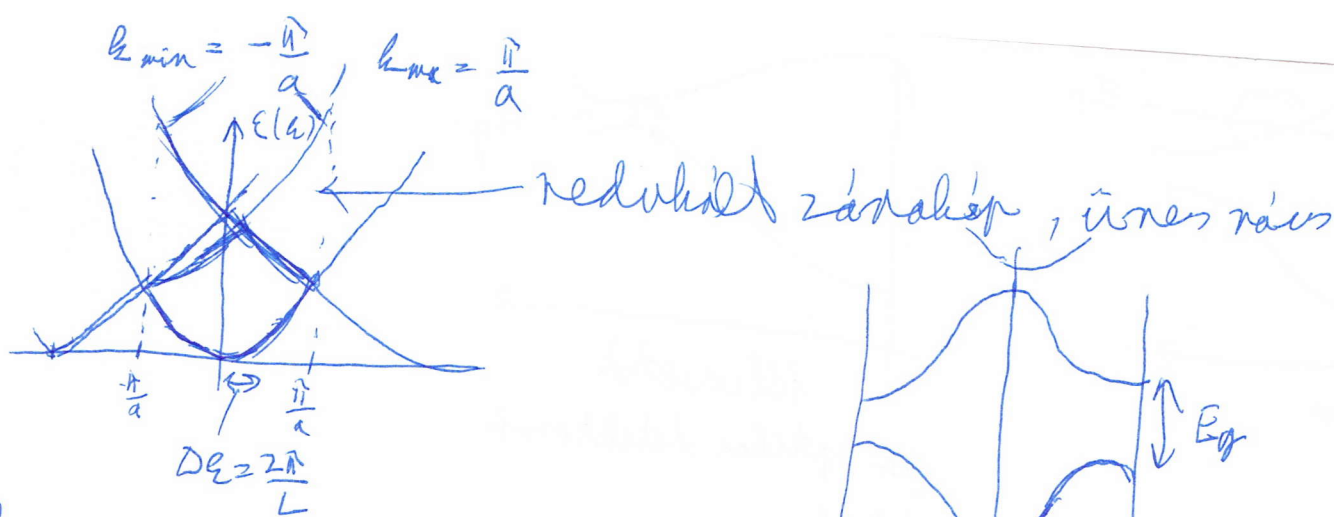 k min = - π/a
k max = π/a
ε(k)
redukált zónakép, üres rács
-π/a
π/a
Δk = 2π/L
Eg